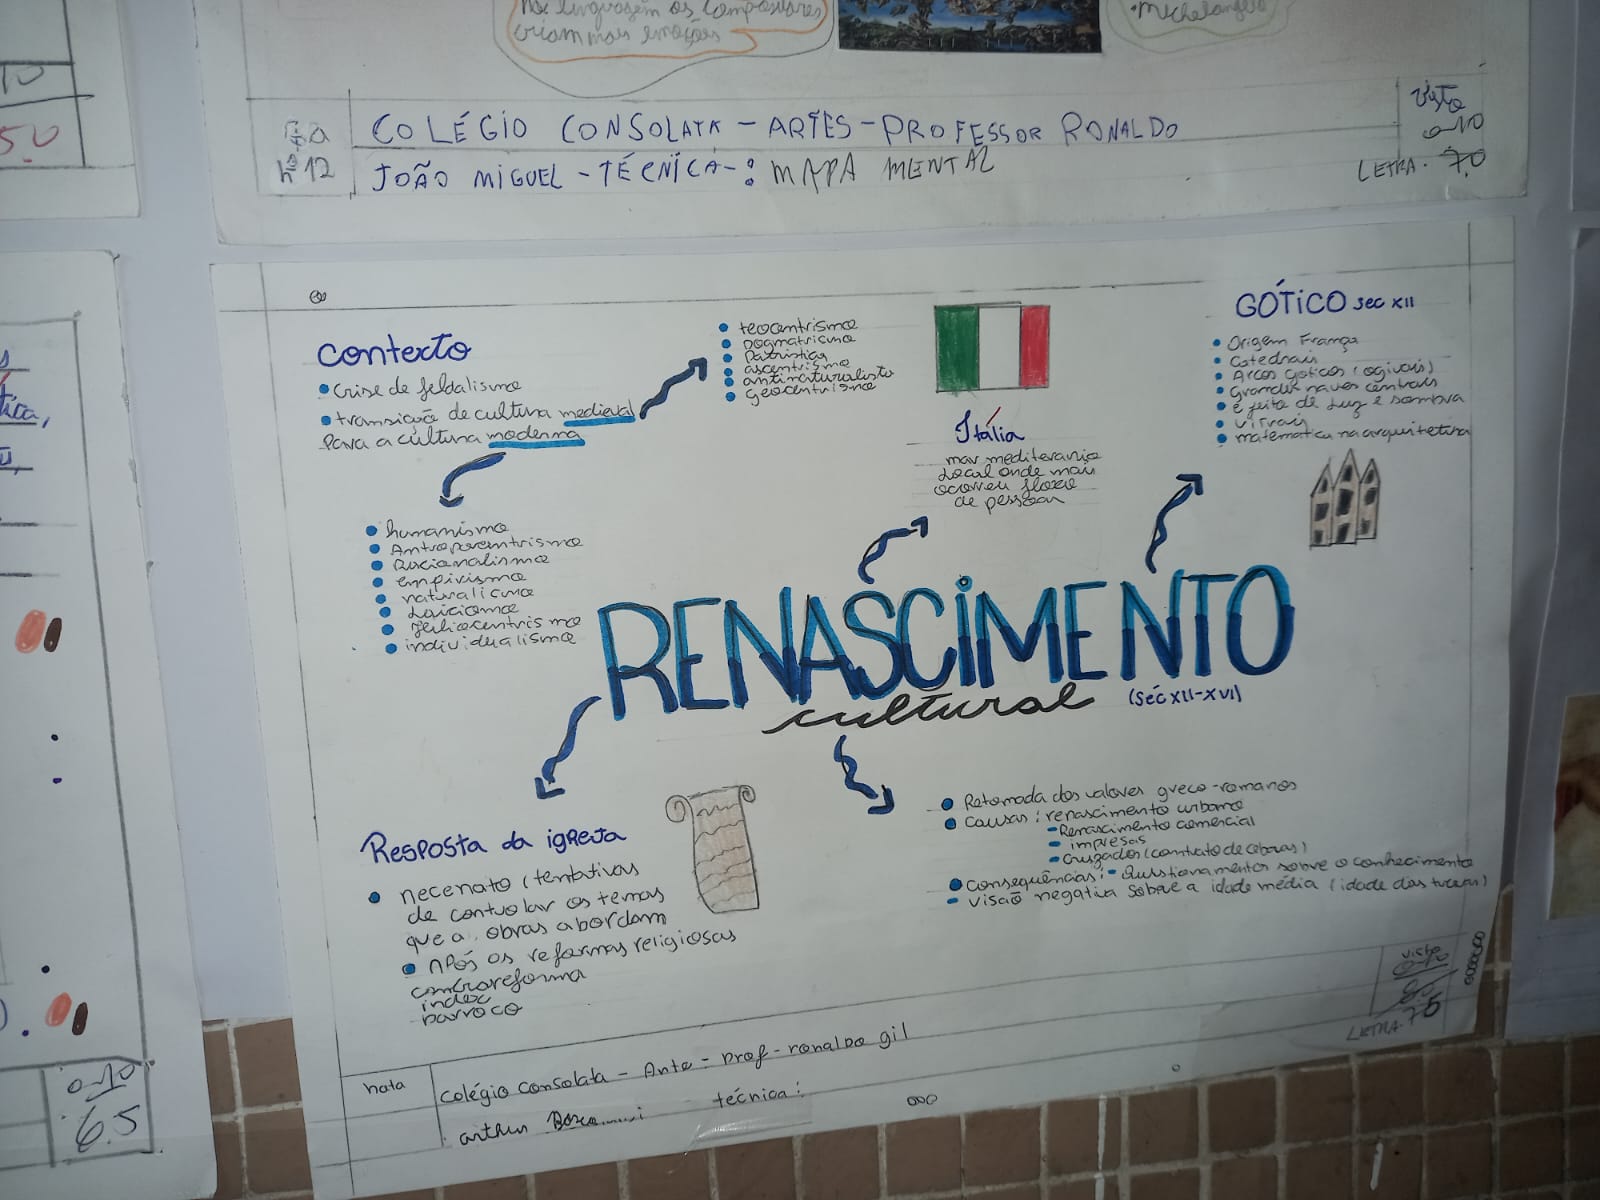 na linguagem os compositores
criam mais emoções
• Michelangelo
10
5.0
nº 12
COLÉGIO CONSOLATA - ARTES - PROFESSOR RONALDO
JOÃO MIGUEL - TÉCNICA -: MAPA MENTAL
Visto
0-10
LETRA. 7.0
Contexto
• Crise de feldalismo
• transição de cultura medieval
para a cultura moderna
• teocentrismo
• Dogmatismo
• Patristica
• ascentrismo
• antinaturalista
• geocentrismo
Itália
mar mediterranio
Local onde mais
ocorreu fluxo
de pessoas
GÓTICO sec XII
• Origem França
• Catedrais
• Arcos goticos (ogivais)
• Grandes naves centrais
• é feito de Luz e sombra
• vitrais
• matemática na arquitetura
• humanismo
• Antropocentrismo
• Racionalismo
• empirismo
• naturalismo
• Laicismo
• heliocentrismo
• individualismo
RENASCIMENTO
cultural (séc XII-XVI)
Resposta da igreja
• necenato (tentativas
de controlar os temas
que a obras abordam
• APÓS as reformas religiosas
contrareforma
index
barroco
• Retomada dos valores greco-romanos
• Causas: renascimento urbano
- Renascimento comercial
- impresas
- Cruzadas (contrato de cobras)
• Consequências: - Questionamentos sobre o conhecimento
- visão negativa sobre a idade média (idade das trevas)
visto
0-10
LETRA. 7.5
nota
Colégio Consolata - Arte - Prof - ronaldo gil
arthur
técnica:
0-10
6.5